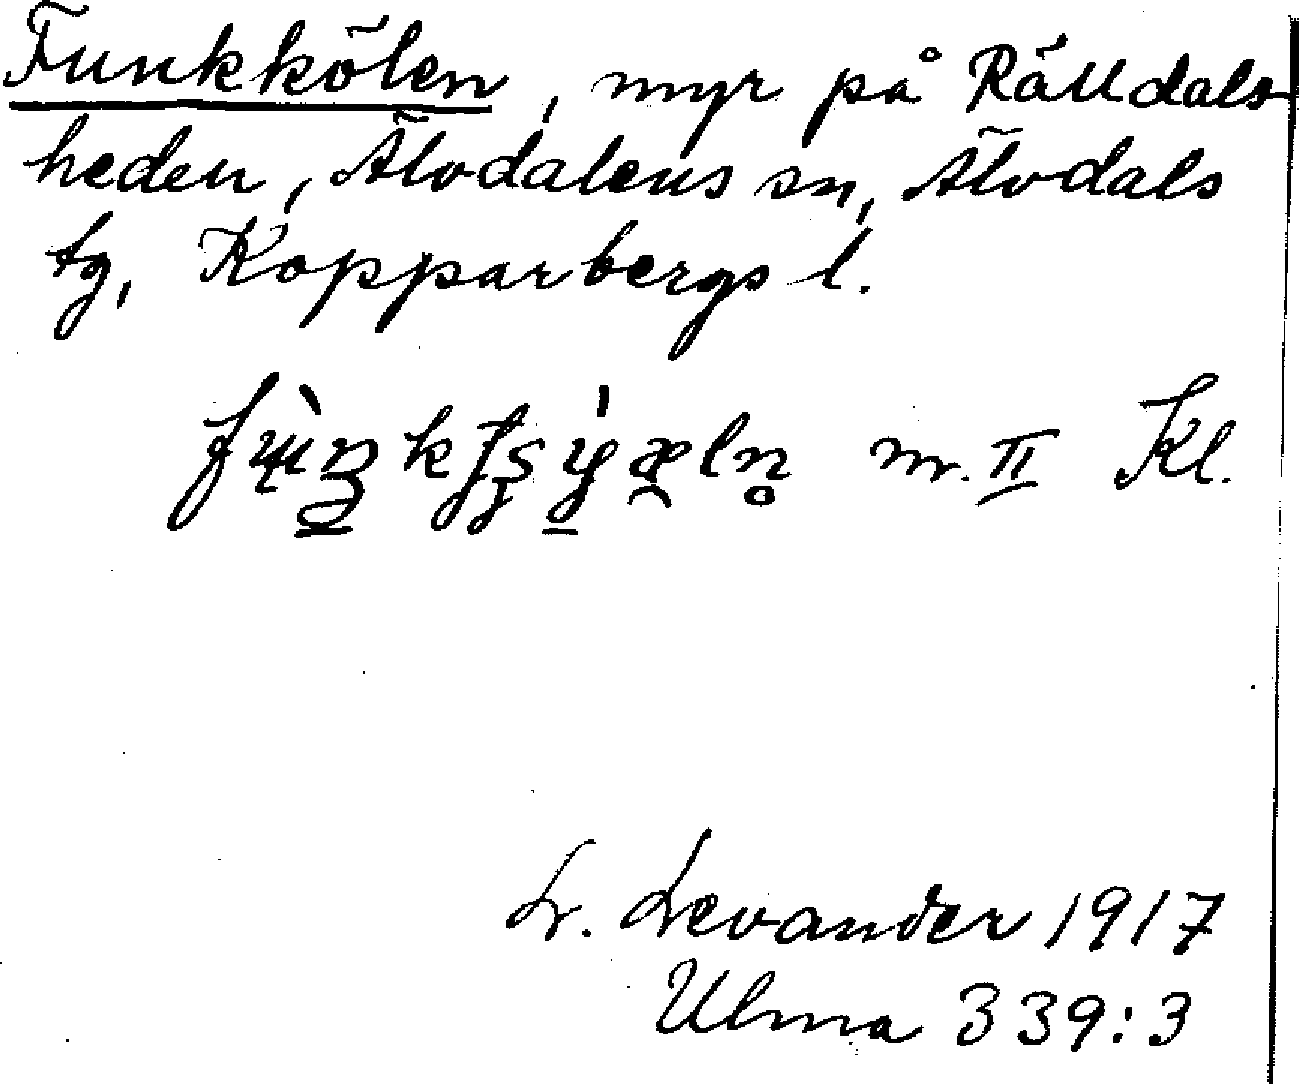 Funkkölen, myr på Rälldals-
heden, Älvdalens sn, Älvdals
tg, Kopparbergs l.
m. II Kl.
L. Levander 1917
Ulma 339:3